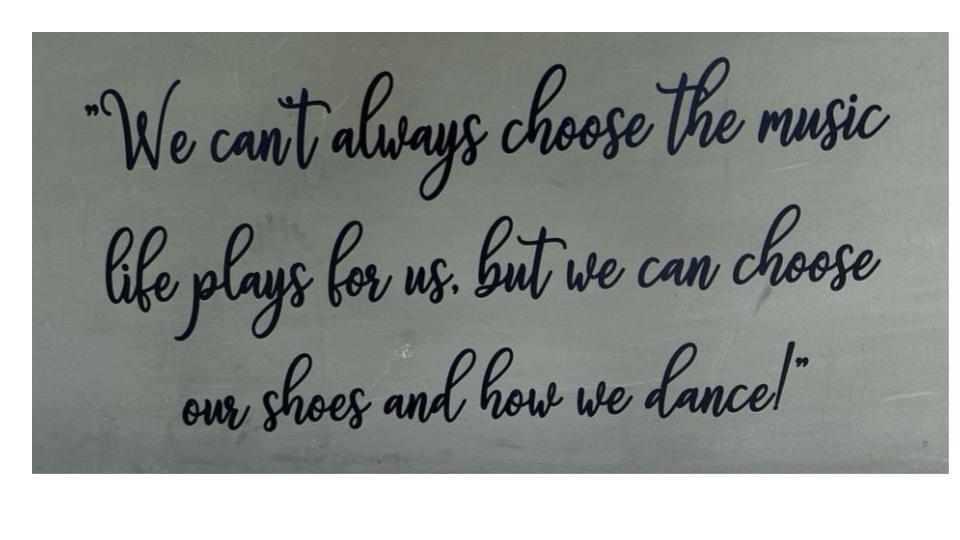 "We can't always choose the music
life plays for us, but we can choose
our shoes and how we dance!"